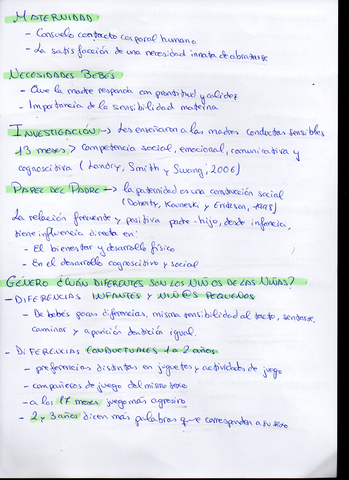 MATERNIDAD
- Consuelo contacto corporal humano
- La satisfacción de una necesidad innata de abrazarse
NECESIDADES BEBÉS
- Que la madre responda con prontitud y calidez
- Importancia de la sensibilidad materna
INVESTIGACIÓN → Les enseñaron a las madres conductas sensibles
13 meses > competencia social, emocional, comunicativa y
cognoscitiva (Landry, Smith y Swang, 2006)
PAPEL DEL PADRE → la paternidad es una construcción social
(Doherty, Kouneski y Erickson, 1998)
La relación frecuente y positiva padre-hijo, desde infancia,
tiene influencia directa en:
- El bienestar y desarrollo físico
- En el desarrollo cognoscitivo y social
GÉNERO ¿CUÁN DIFERENTES SON LOS NIÑOS DE LAS NIÑAS?
- DIFERENCIAS INFANTES Y NIÑ@S PEQUEÑOS
- De bebés pocas diferencias, misma sensibilidad al tacto, sentarse,
caminar y aparición dentición igual.
- DIFERENCIAS CONDUCTUALES 1 a 2 años
- preferencias distintas en juguetes y actividades de juego
- compañeros de juego del mismo sexo
- a los 17 meses juego más agresivo
- 2 y 3 años dicen más palabras que corresponden a su sexo